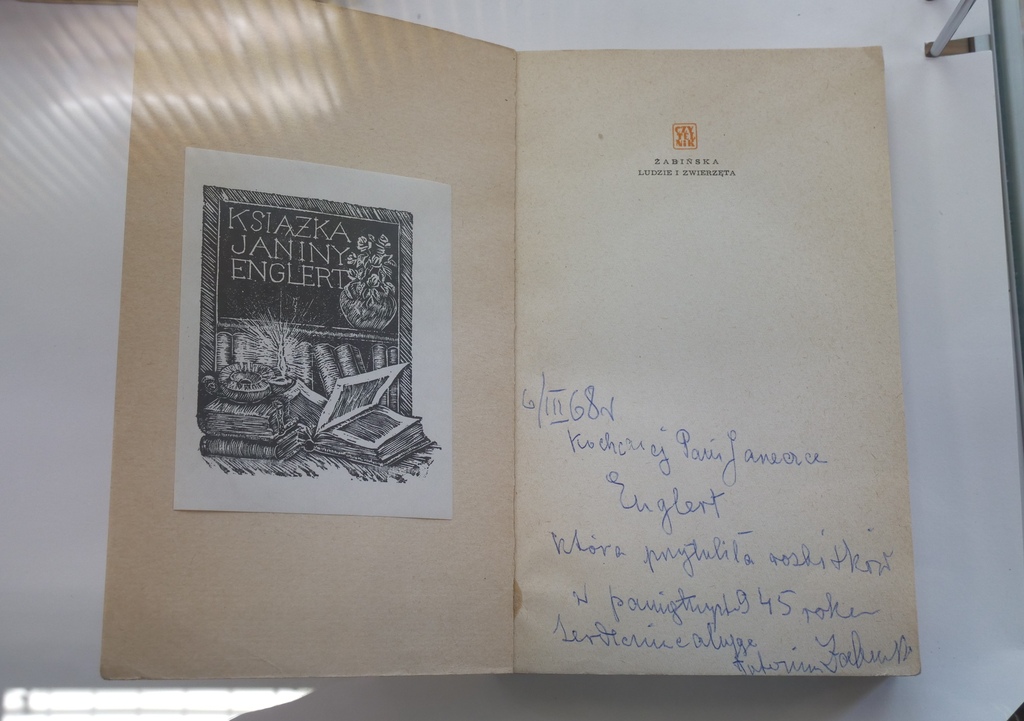 KSIĄŻKA
JANINY
ENGLERT
CZY
TEL
NIK
ŻABIŃSKA
LUDZIE I ZWIERZĘTA
6/III 68 r
Kochanej Pani Janeczce
Englert
która przytuliła rozbitków
w pamiętnym 945 roku
serdecznie
Antonina Żabińska